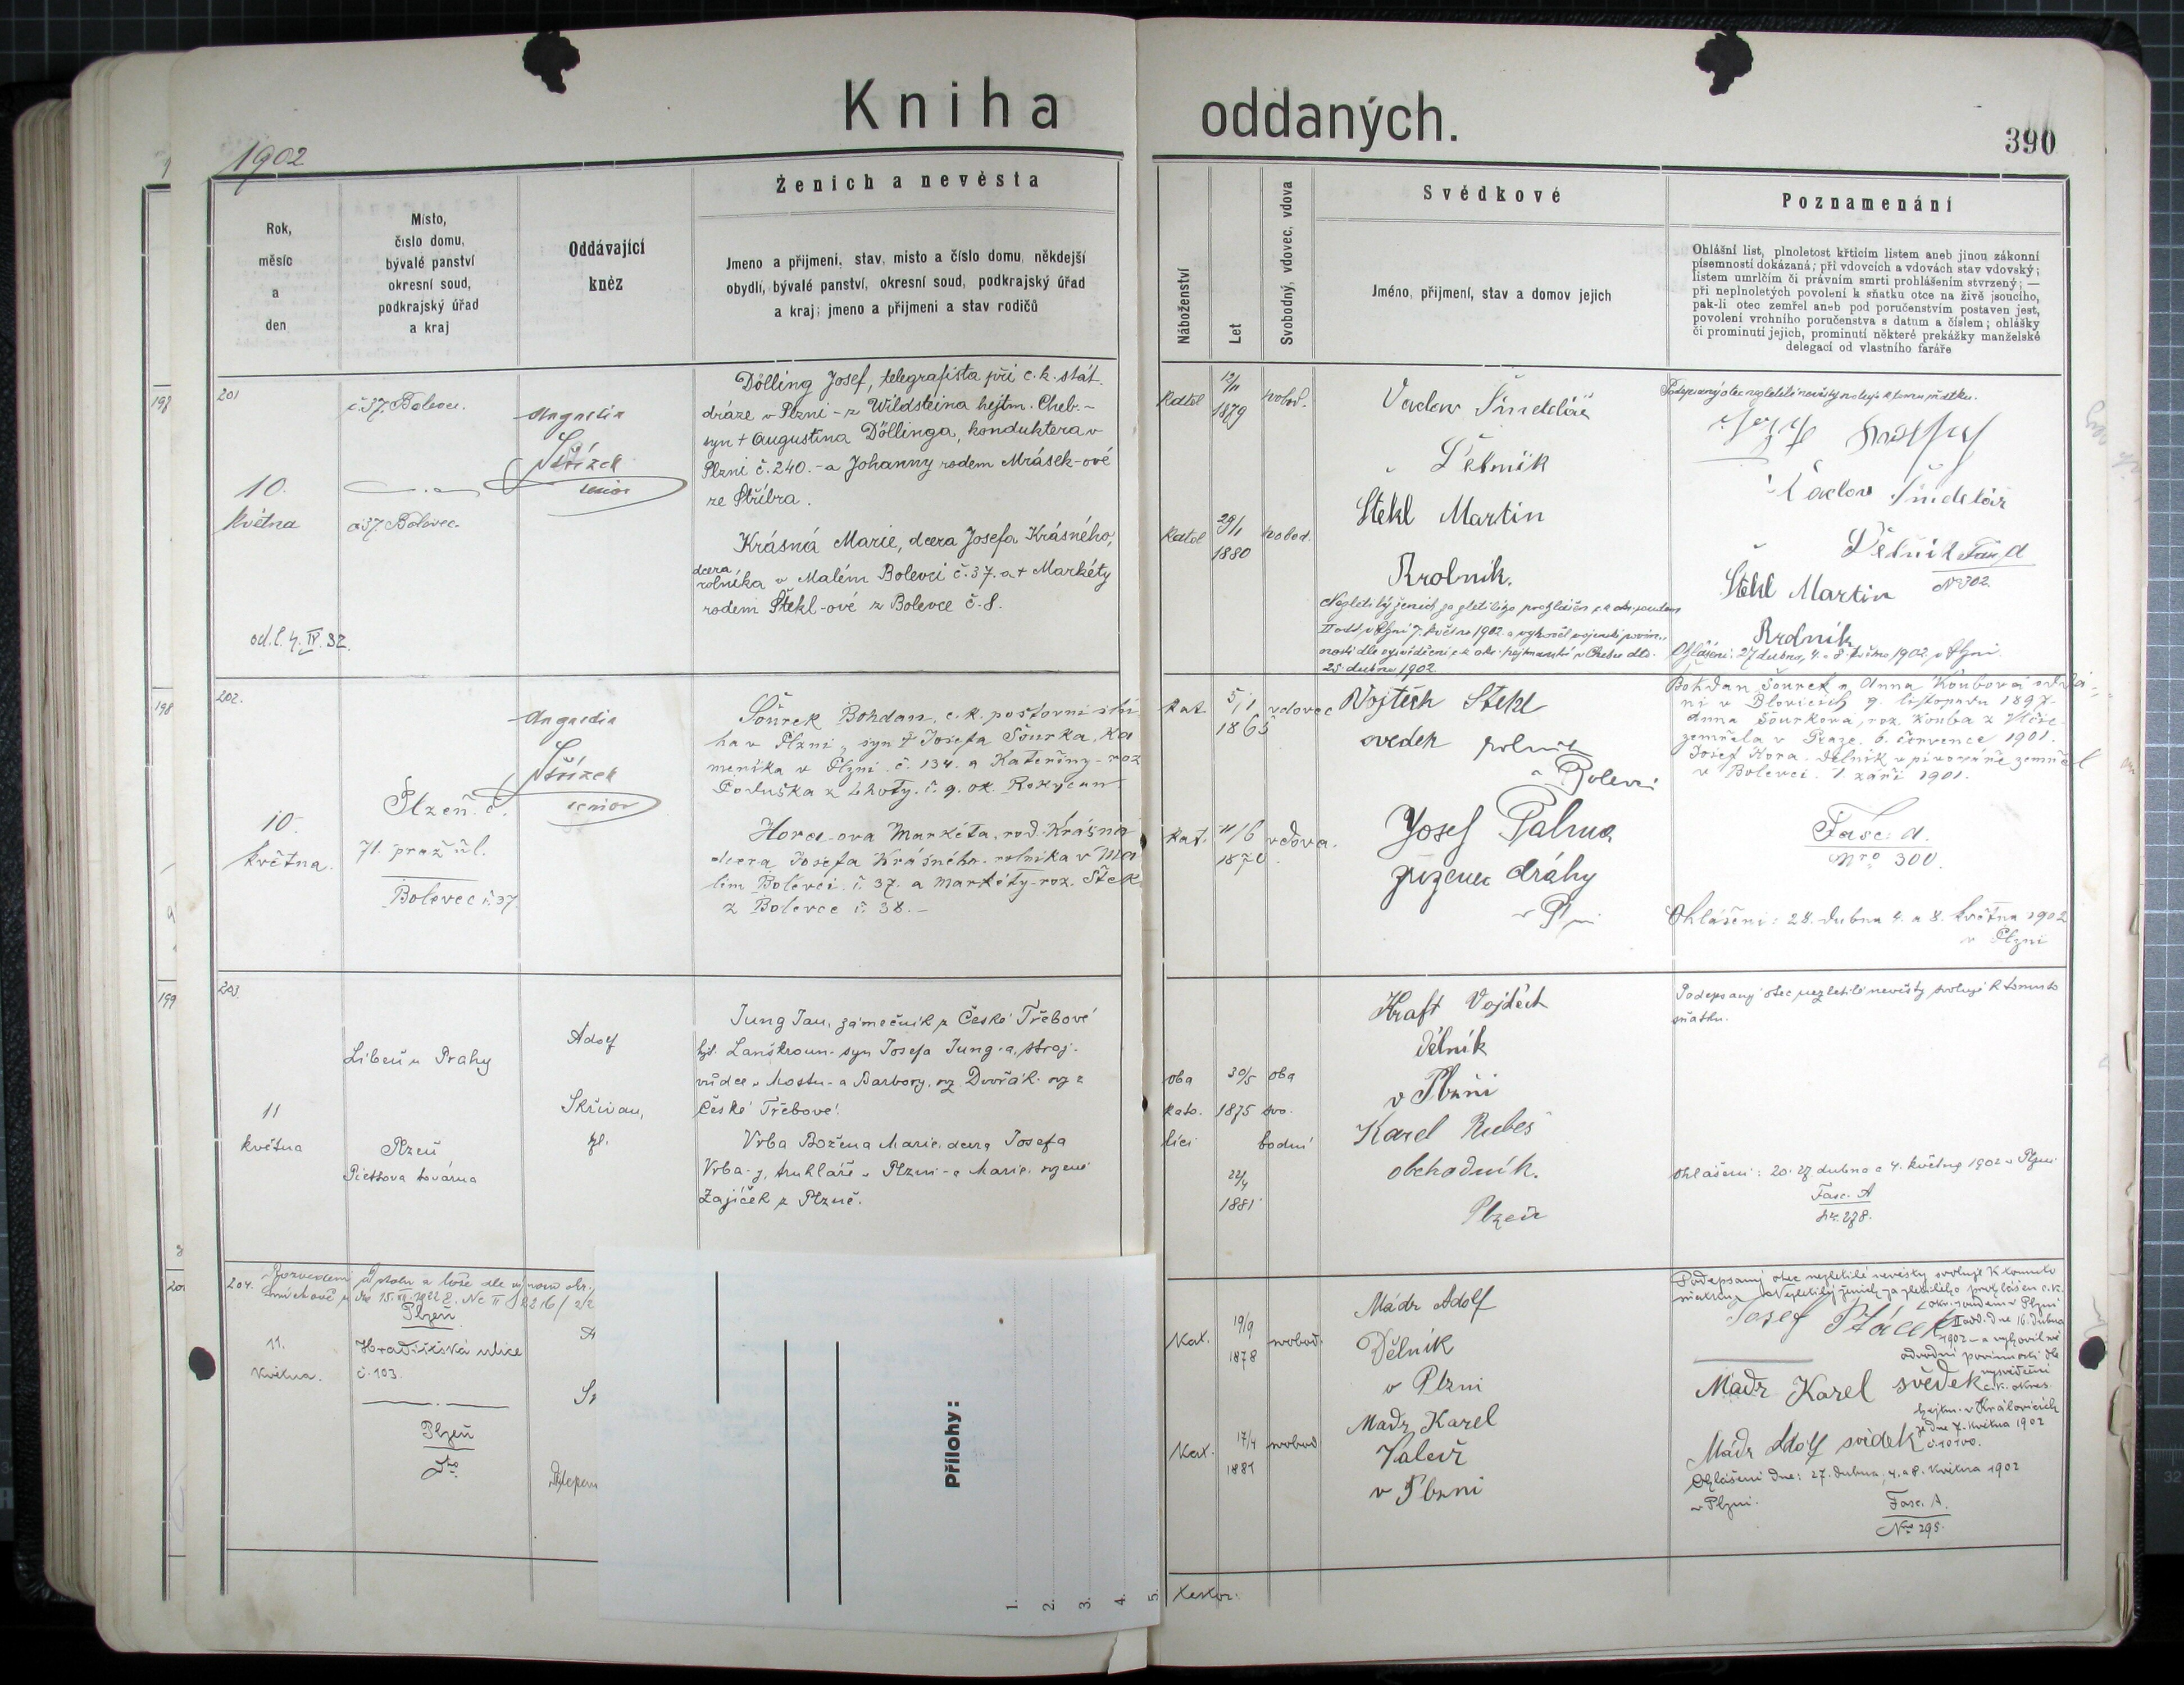 Kniha oddaných.
390
1902
Rok,
měsíc
a
den
Místo,
číslo domu,
bývalé panství
okresní soud,
podkrajský úřad
a kraj
Oddávající
kněz
Ženich a nevěsta
Jmeno a přijmení, stav, misto a číslo domu, někdejší
obydlí, bývalé panství, okresní soud, podkrajský úřad
a kraj; jmeno a přijmeni a stav rodičů
Náboženství
Let
Svobodný, vdovec, vdova
Svědkové
Jméno, přijmení, stav a domov jejich
Poznamenání
Ohlášní list, plnoletost křticím listem aneb jinou zákonní
písemností dokázaná; při vdovcích a vdovách stav vdovský;
listem umrlčím či právním smrti prohlášením stvrzený; —
při neplnoletých povolení k sňatku otce na živě jsoucího,
pak-li otec zemřel aneb pod poručenstvím postaven jest,
povolení vrchního poručenstva s datum a číslem; ohlášky
či prominutí jejich, prominutí některé prekážky manželské
delegací od vlastního faráře
201
10.
května
č.37. Bolevec.
č.37. Bolevec.
Střízek
senior
Dölling Josef, telegrafista při c.k. stát.
dráze v Plzni - z Wildsteina hejtm. Cheb. -
syn + Augustina Döllinga, konduktera v
Plzni č. 240. - a Johanny rodem Mrásek-ové
ze Stříbra.
Krásná Marie, dcera Josefa Krásného,
dcera
rolníka v Malém Bolevci č. 37. a + Markéty
rodem Štekl-ové z Bolevce č. 8.
od.l. 4. IV. 32.
12/11
1879
svobod.
29/1
1880
svobod.
Václav Šindelář
Dělník
Stekl Martin
Rrolnik.
Nezletilý ženich za zletilého prohlášen c.k. okr. soudem
II odd. v Plzni 7. května 1902 a vyhověl vojenské povin-
nosti dle vysvědčení c.k. okr. hejtmanství v Chebu dto.
25. dubna 1902.
Podepsaný otec nezletilé nevěsty svoluje k tomu sňatku.
Václav Šindelář
Dělník Fasc. A
No 302.
Stekl Martin
Rrolnik
Ohlášeni: 27 dubna, 4. a 8. května 1902 v Plzni.
202.
10.
května.
Plzeň č.
71. praž. úl.
Bolevec č. 37
Střízek
senior
Šourek Bohdan, c.k. poštovní slu
ha v Plzni, syn + Josefa Šourka, ka
meníka v Plzni č. 134. a Kateřiny - roz
Poduška z Lhoty. č. 9. ok. Rokycan.
Hora-ova Markéta, rod. Krásná
dcera Josefa Krásného. rolníka v Ma
lém Bolevci. č. 37. a Markéty - roz. Štek
z Bolevce č. 38. -
kat.
5/1
1865
vdovec
kat.
11/6
1870.
vdova.
Vojtěch Stekl
svedek rolnik
v Bolevci
Josef Palma
zřizenec dráhy
v Plni
Bohdan Šourek a Anna Koubova odda
ni v Blovicích 9. listopadu 1897
Anna Šourkova, roz. Kouba z
zemřela v Praze. 6. července 1901.
Josef Hora. dělník v pivováře zemřel
v Bolevci. 1. září 1901.
Fasc: A.
Nro 300.
Ohlášeni: 28. dubna 4. a 8. května 1902
v Plzni
203.
11
května
Libeň u Prahy
Plzeň
Piettova továrna
Adolf
Skřivan,
Jung Jan, zámečník z České Třebové
hjt. Lanškroun - syn Josefa Jung-a, stroj-
vůdce v Mostu - a Barbory, roz Dvořák. roz z
České Třebové.
Vrba Božena Marie. dcera Josefa
Vrba-y, truhláře v Plzni - a Marie. rozené
Zajíček z Plzně.
oba
kato.
líci
30/5
1875
22/4
1881
oba
svo.
bodni
Kraft Vojtěch
dělník
v Plzni
Karel Rubeš
obchodník.
Plzeň
Podepsaný otec nezletilé nevěsty svoluje k tomuto
sňatku.
Ohlášeni: 20. 27. dubna a 4. května 1902 v Plzni.
Fasc. A
No. 278.
204.
Rozvedeni od stolu a lože dle
11.
května.
Plzeň
Hradištská ulice
č. 103.
Plzeň
Přílohy:
1.
2.
3.
4.
5.
Kat.
19/9
1878
svobod.
Kat.
17/4
1881
svobod
Mádr Adolf
Dělník
v Plzni
Madr Karel
Valeiř
v Plzni
Podepsaný otec nezletilé nevěsty svoluje k tomuto
sňatku. Nezletilý ženich za zletilého prohlášen c.k.
okr. soudem v Plzni
Josef Ptáček
II odd. dne 16. dubna
1902 - a vyhověl své
odvodní povinnosti dle
vysvědčení
c.k. okres.
Madr Karel svědek
hejtm. v Kralovicích
ze dne 7. května 1902
Mádr Adolf svědek
Ohlášeni dne: 27. dubna, 4. a 8. května 1902
v Plzni.
Fasc. A.
Nro 295.